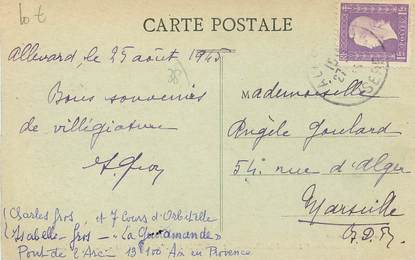 lot
CARTE POSTALE
Allevard, le 25 août 1945
38
Bons souvenirs
de villégiature
Mademoiselle
Angèle Goulard
54 rue d'Alger
Marseille
B.D.R.
Charles Gros, 7 Cours d'Orbitelle
Isabelle Gros - "La
Pont de l'Arc 13100 Aix en Provence